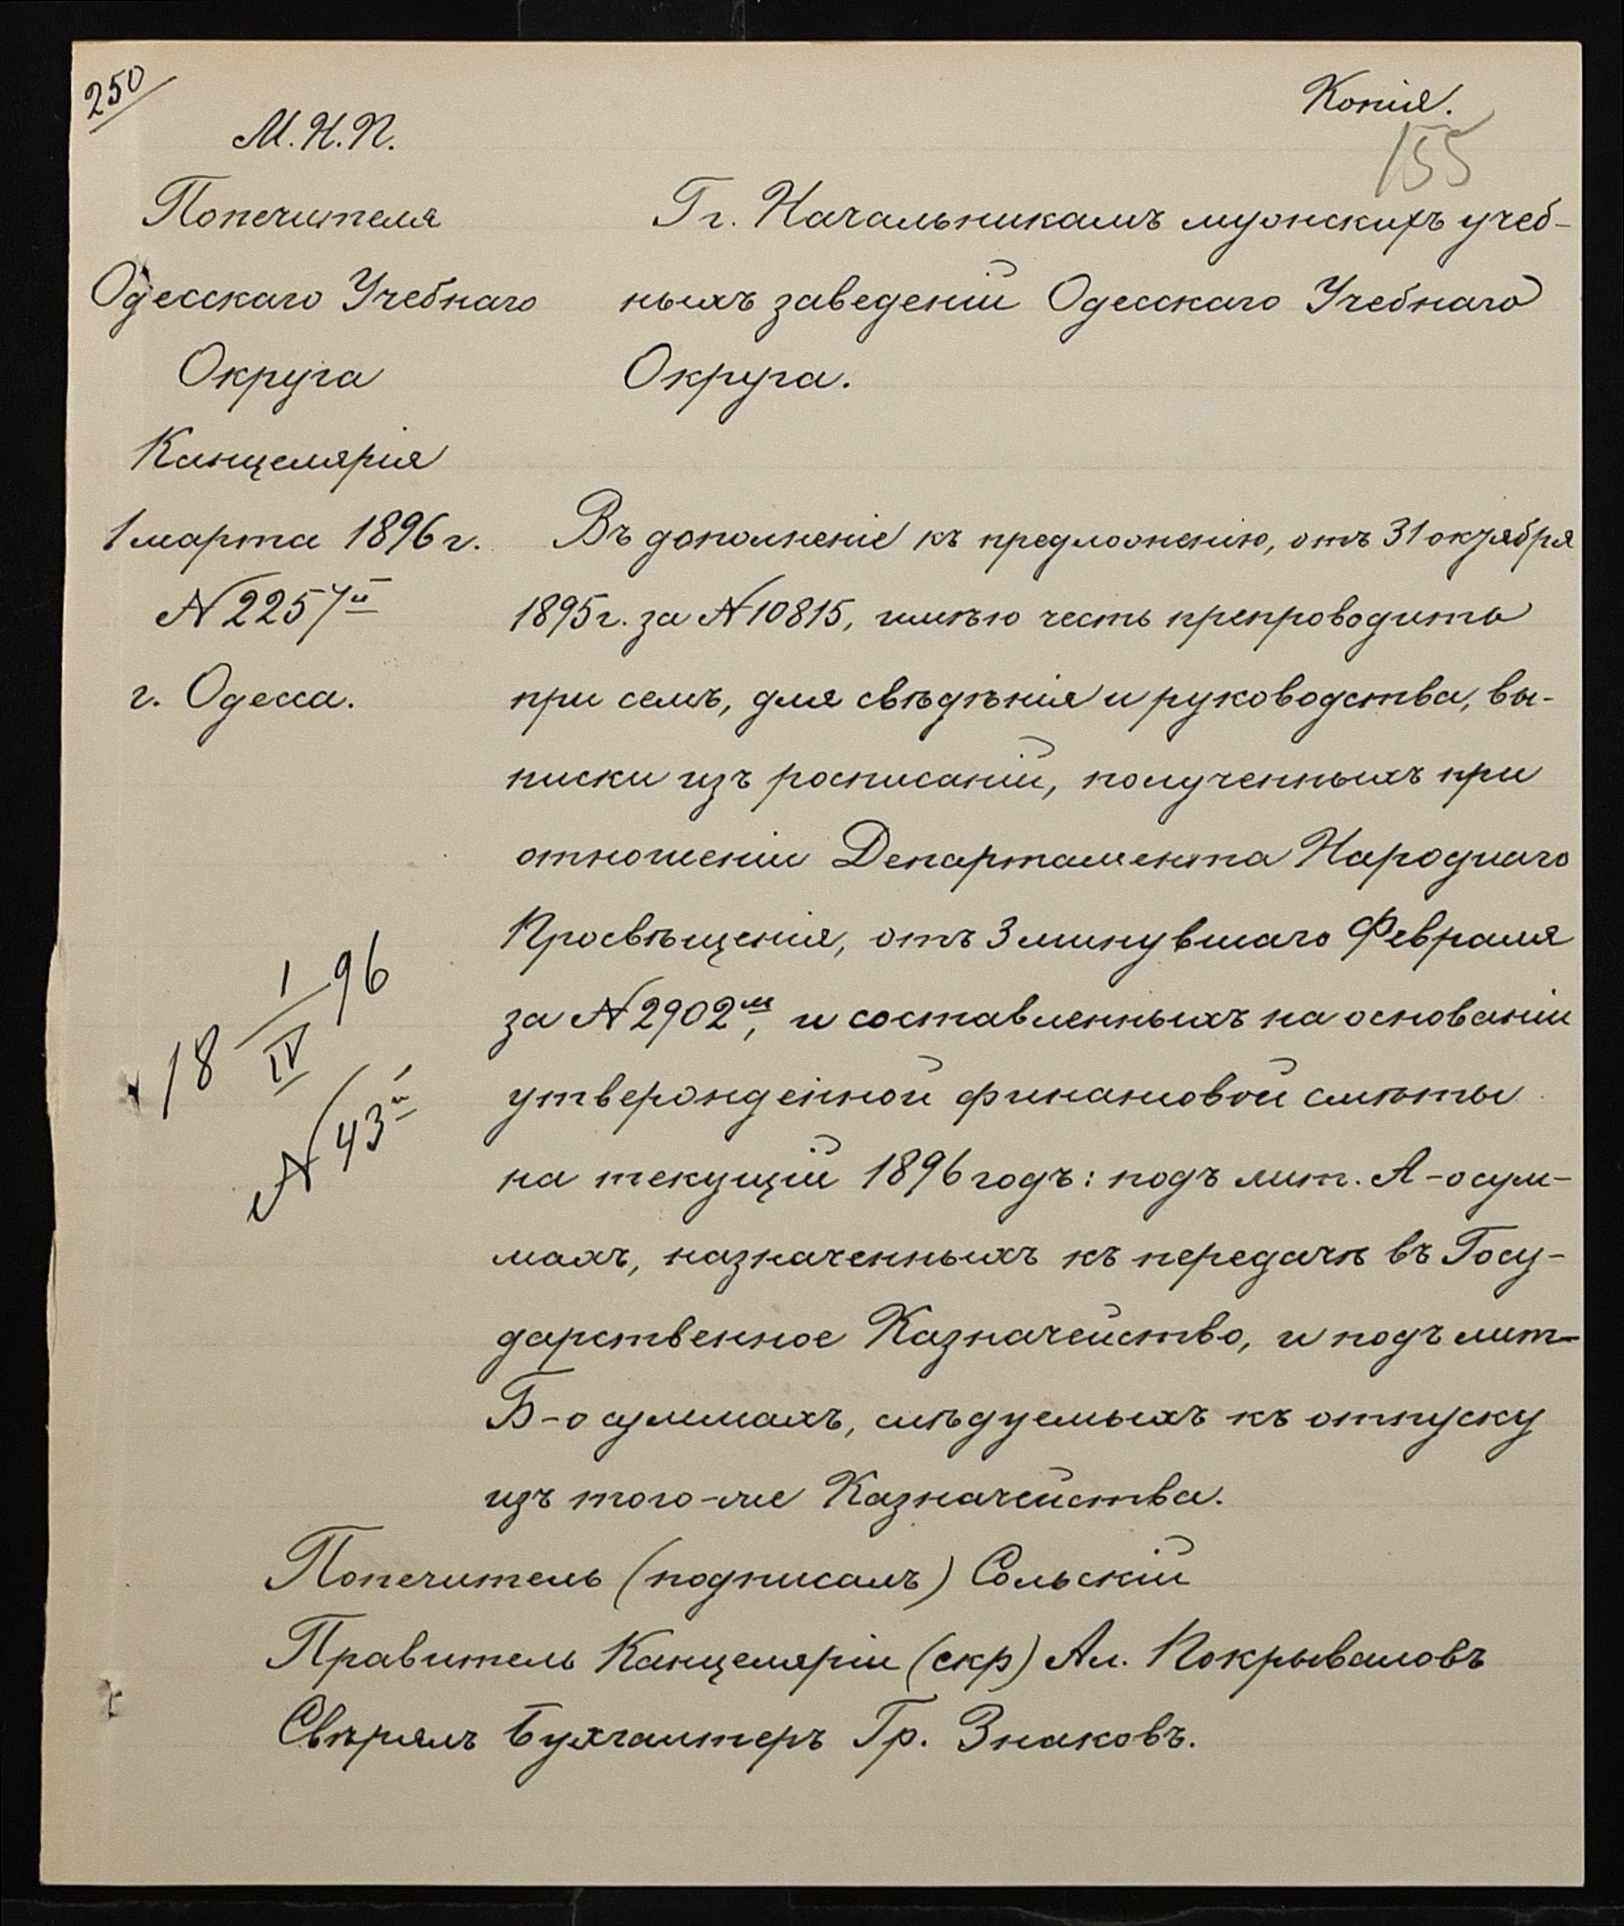 250
Копія.
155
М.Н.П.
Попечителя
Одесскаго Учебнаго
Округа
Канцелярія
1 марта 1896 г.
№ 2257й
г. Одесса.
18 1/IV 96
№ 43й
Гг. Начальникамъ мужскихъ учеб-
ныхъ заведеній Одесскаго Учебнаго
Округа.
Въ дополненіе къ предложенію, отъ 31 октября
1895 г. за № 10815, имѣю честь препроводить
при семъ, для свѣдѣнія и руководства, вы-
писки изъ росписаній, полученныхъ при
отношеніи Департамента Народнаго
Просвѣщенія, отъ 3 минувшаго Февраля
за № 2902мъ, и составленныхъ на основаніи
утвержденной финансовой смѣты
на текущій 1896 годъ: подъ лит. А - о сум-
махъ, назначенныхъ къ передачѣ въ Госу-
дарственное Казначейство, и подъ лит.
Б - о суммахъ, слѣдуемыхъ къ отпуску
изъ того-же Казначейства.
Попечитель (подписалъ) Сольскій
Правитель Канцеляріи (скр) Ал. Покрываловъ
Свѣрялъ Бухгалтеръ Гр. Знаковъ.